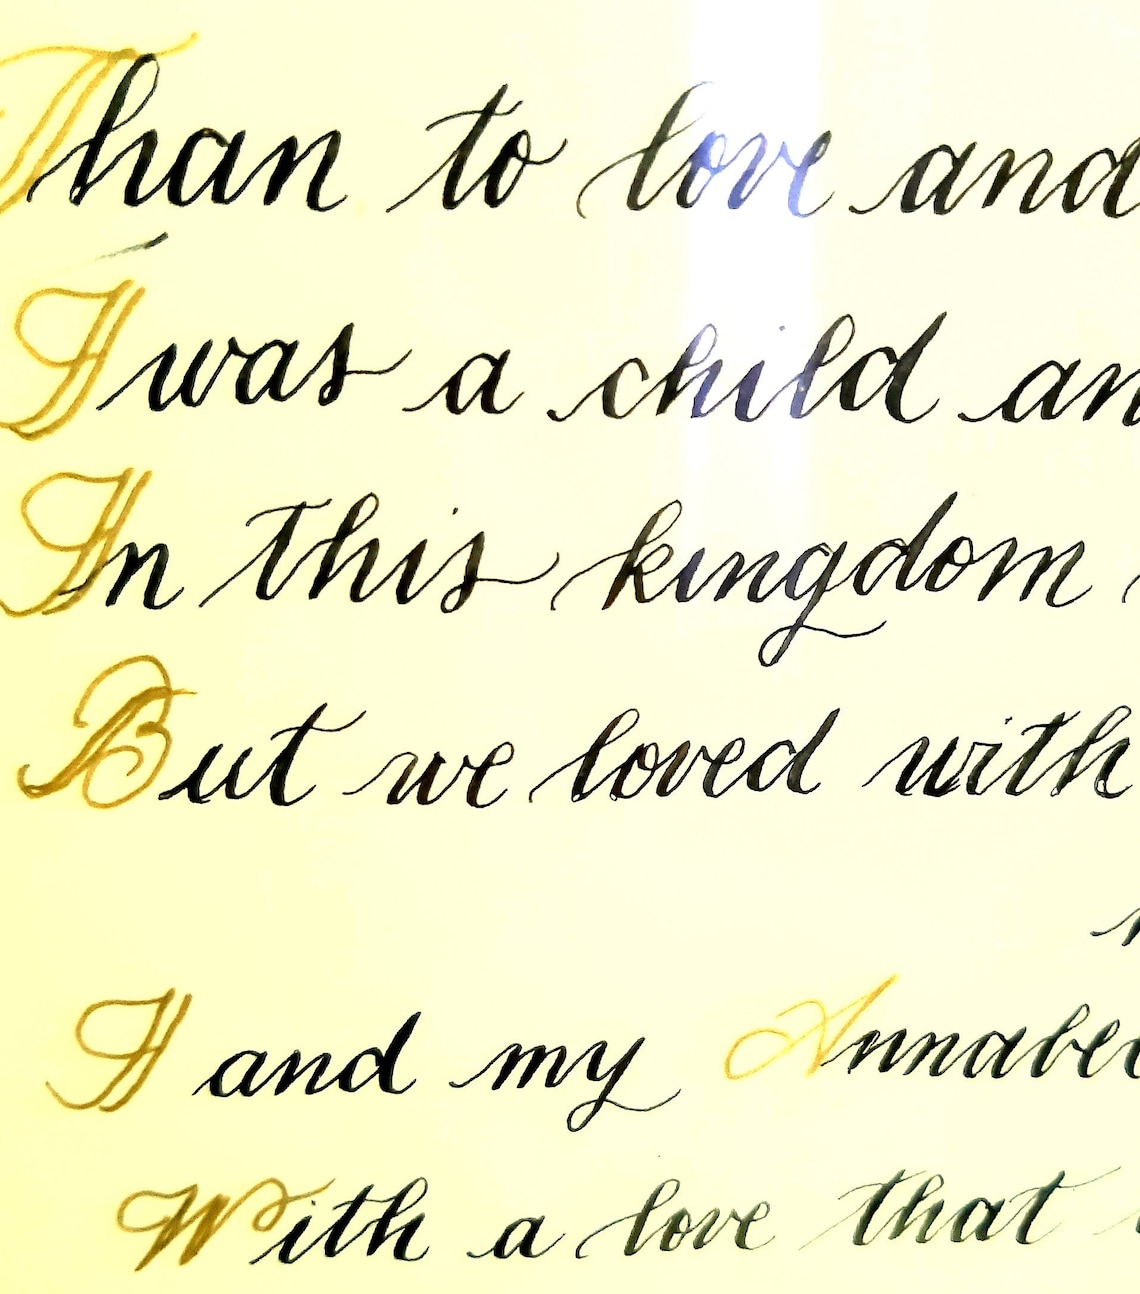 Than to love and
I was a child an
In this kingdom
But we loved with
I and my Annabel
With a love that